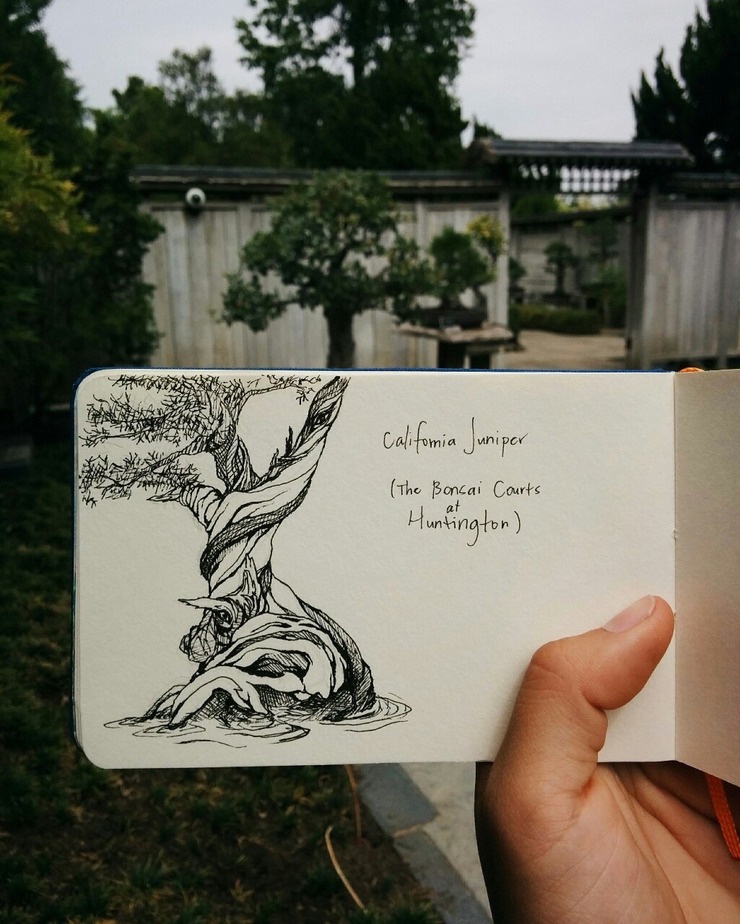 California Juniper
(The Bonsai Courts
at
Huntington)